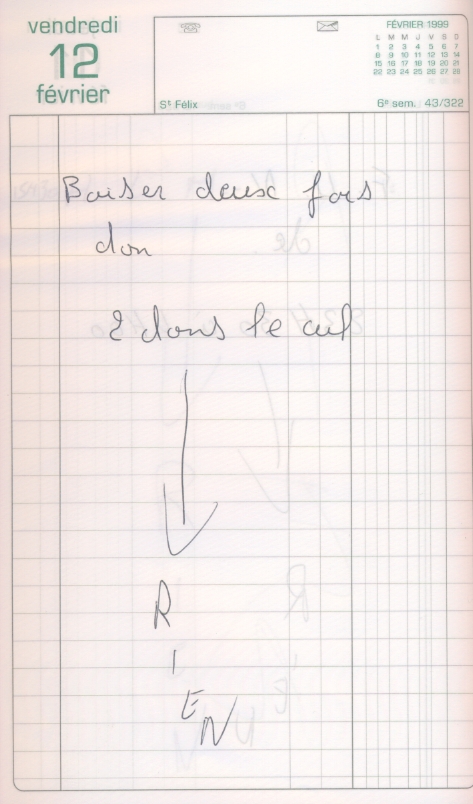 vendredi
12
février
St Félix
FÉVRIER 1999
L M M J V S D
1 2 3 4 5 6 7
8 9 10 11 12 13 14
15 16 17 18 19 20 21
22 23 24 25 26 27 28
6e sem. 43/322
Baiser deux fois
don
2 dans le cul
R
I
E
N